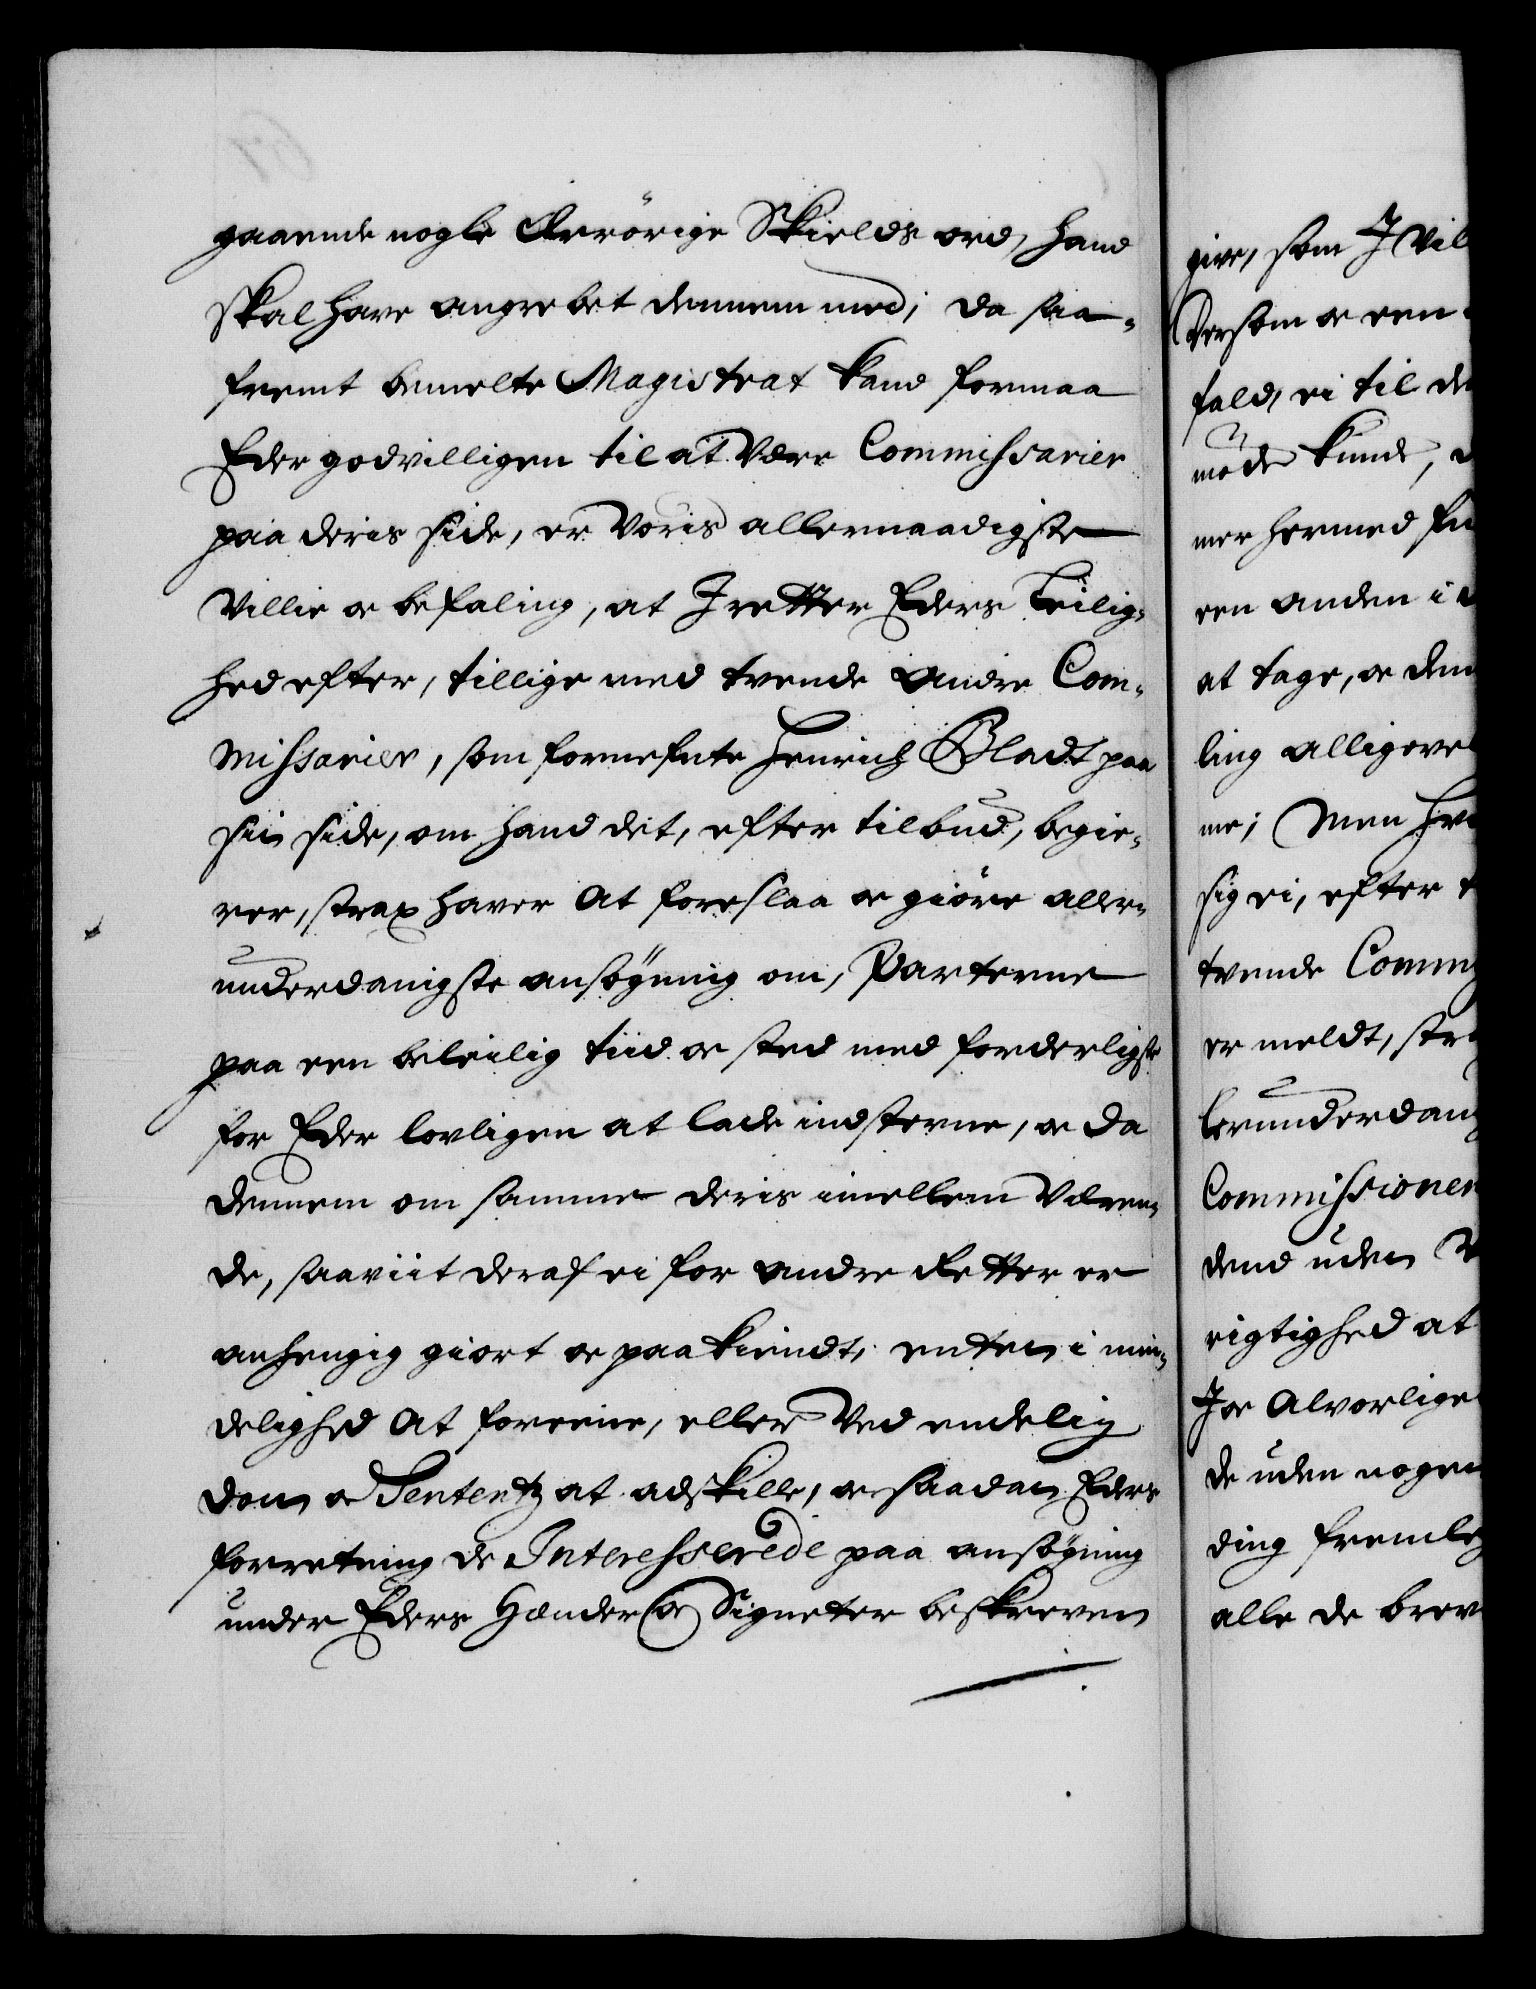 gaaende nogle ærrörige Skields ord, hand
skal have angrebet dennem med; da saa-
fremt bemelte Magistrat kand formaa
Eder godvilligen til at være Commissarier
paa deris side, er Voris allernaadigste
Villie oc befaling, at I retter Eders Leilig-
hed efter, tillige med tvende andre Com-
missarier, som fornefnte Henrich Bladt paa
sin side, om hand det, efter tilbud, begie-
rer, strax haver at foreslaa oc giöre aller-
underdanigste ansögning om, Parterne
paa een beleilig tiid oc sted med forderligste
for Eder lovligen at lade indstevne, oc da
dennem om samme deris imellem Væren-
de, saaviit deraf ei for andre Retter er
anhengig giort oc paakiendt, enten i min-
delighed at foreene, eller Ved endelig
dom oc Sententz at adskille, oc saadan Eders
forretning de Interesserede paa ansögning
under Eders Hænder oc Signeter beskreven
give, som I vil
Dersom oc een
fald, ei til de
möde kunde,
mer hermed
een anden i
at tage, oc dem
ling alligevel
me; Men
sig ei, efter
tvende Comm
er meldt, str
lerunderdan
Commissionen
dend uden
rigtighed at
I oc alvorlige
de uden nogen
ding fremle
alle de brev